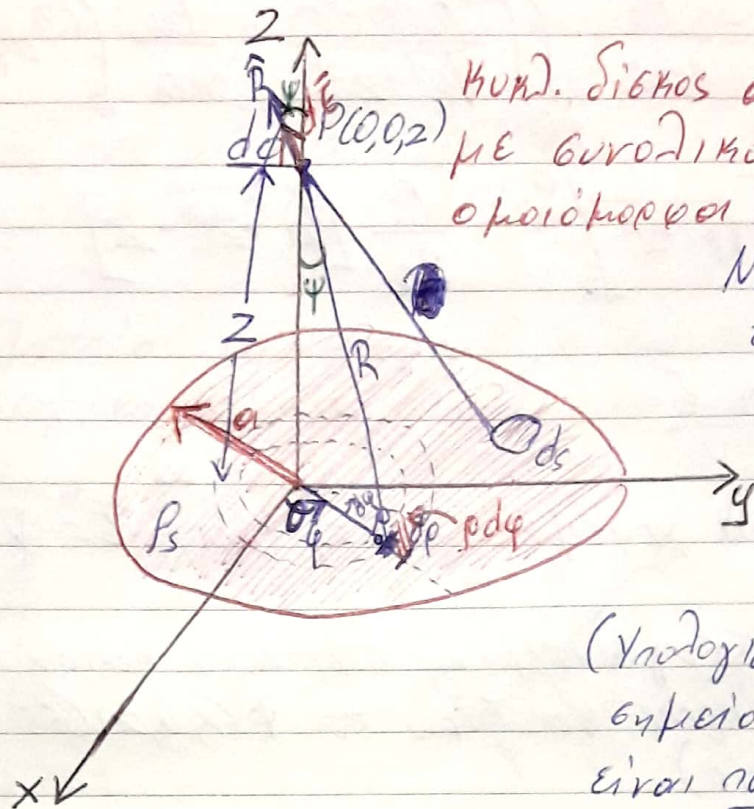 Z
R̂
ψ
P(0,0,z)
κυκλ. δίσκος α
με συνολικό
ομοιόμορφα
ψ
z
R
a
ds
y
ρs
φ
dρ
ρdφ
(Υπολογι
σημείο
είναι
x